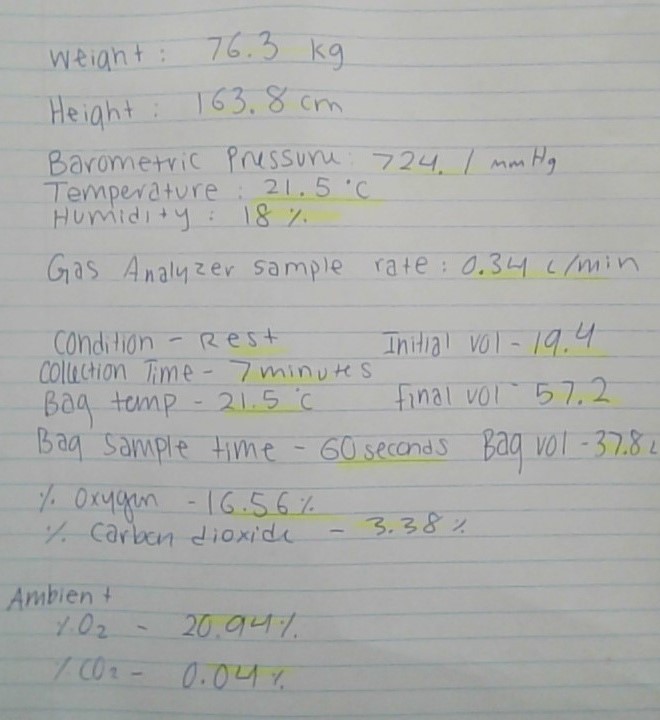 Weight : 76.3 kg
Height : 163.8 cm
Barometric Pressure: 724.1 mmHg
Temperature : 21.5 °C
Humidity : 18 %
Gas Analyzer sample rate : 0.34 L/min
Condition - Rest Initial vol - 19.4
Collection Time - 7 minutes
Bag temp - 21.5 °C final vol - 57.2
Bag sample time - 60 seconds Bag vol - 37.8 L
% Oxygen - 16.56 %
% Carbon dioxide - 3.38 %
Ambient
% O2 - 20.94 %
% CO2 - 0.04 %